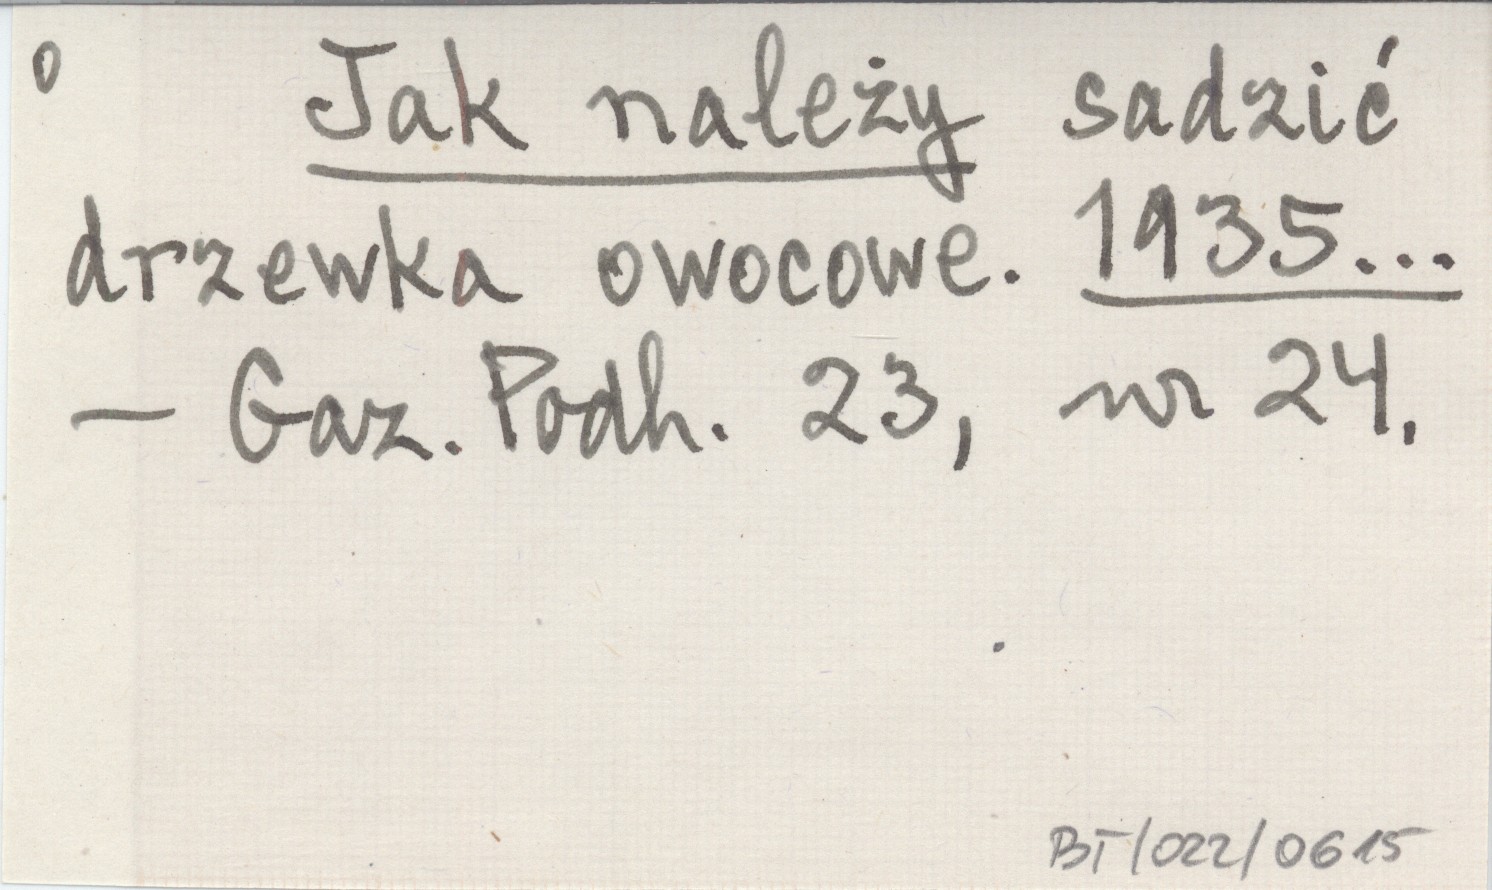 o Jak należy sadzić
drzewka owocowe. 1935...
— Gaz. Podh. 23, nr 24.
BT/022/0615